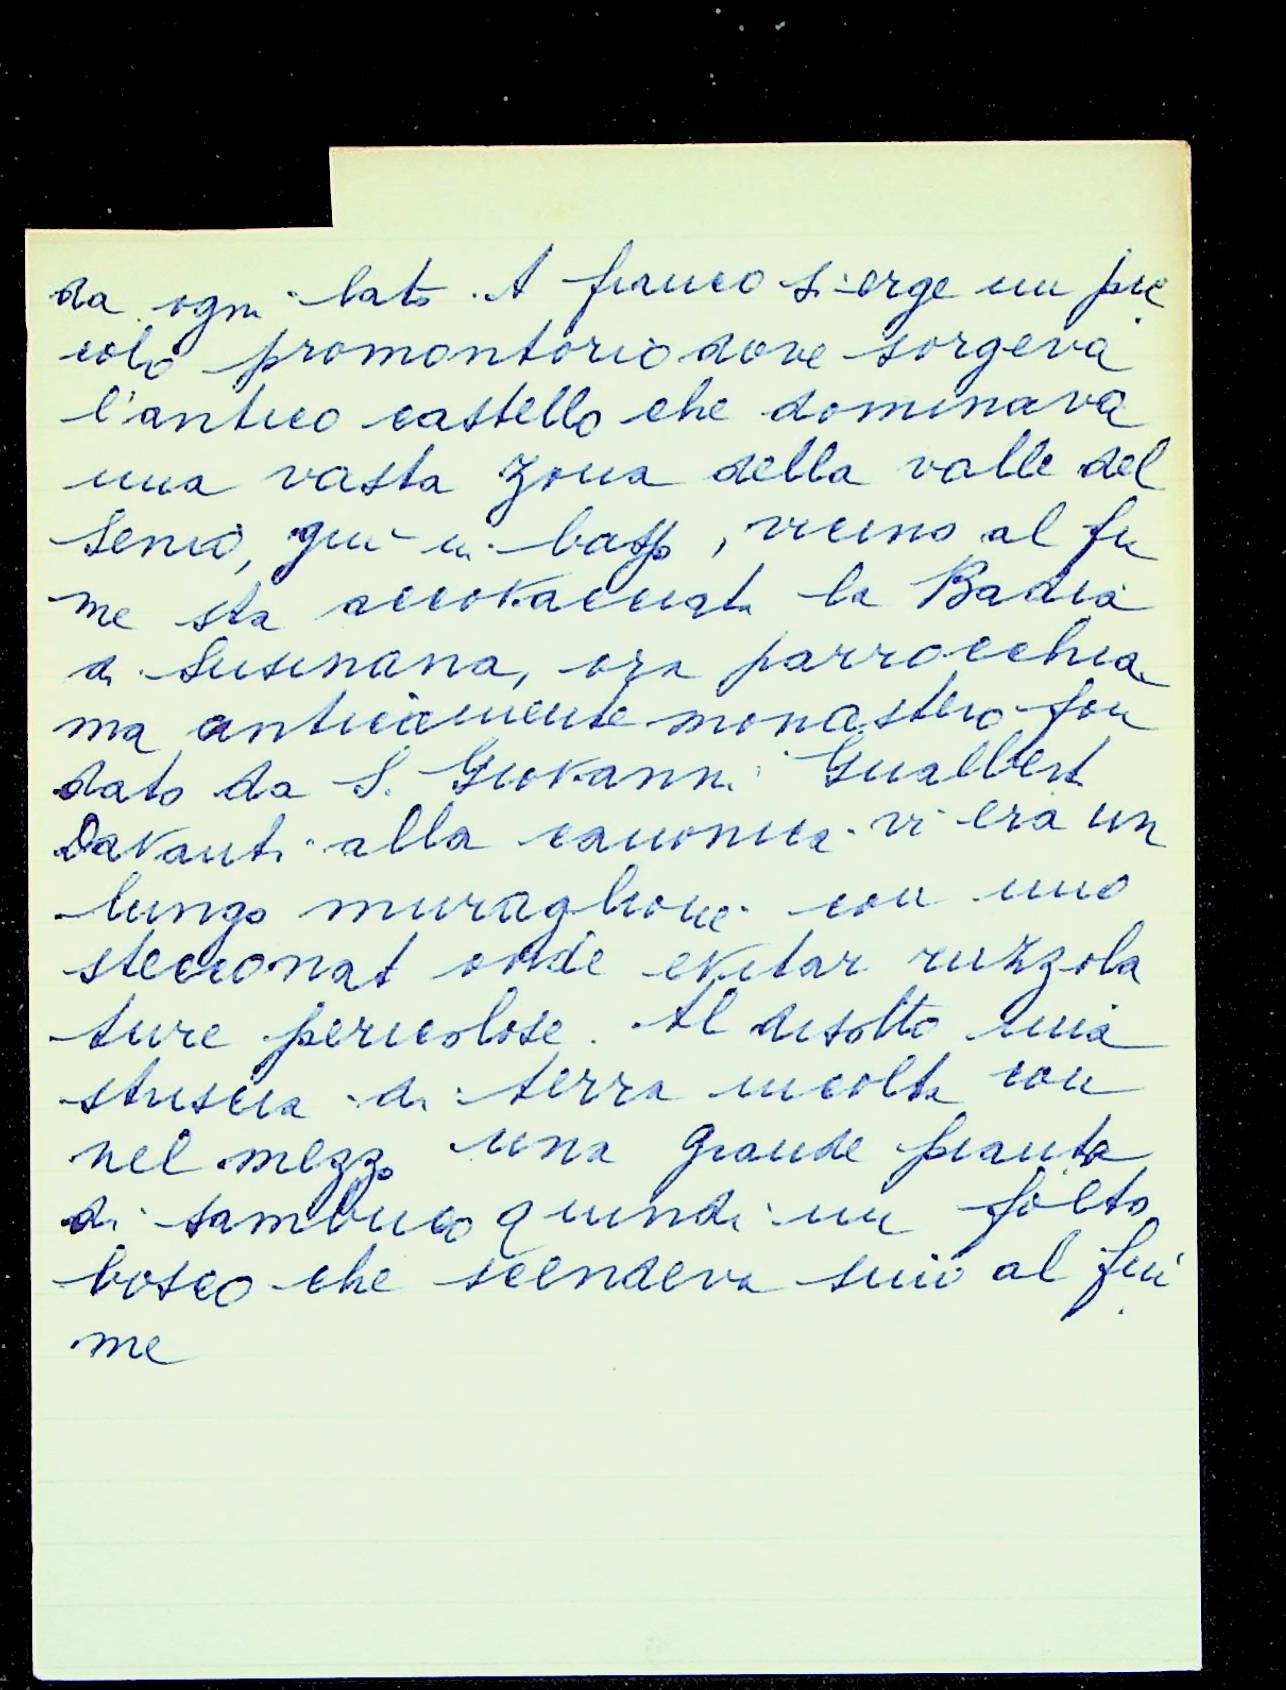 da ogni lato. A fianco si erge un pic
colo promontorio dove sorgeva
l'antico castello che dominava
una vasta zona della valle del
Senio, giù in basso, vicino al fiu
me sta accovacciata la Badia
di Susinana, ora parrocchia
ma anticamente monastero fon
dato da S. Giovanni Gualberto
Davanti alla canonica vi era un
lungo muraglione con uno
steccionato onde evitar ruzzola
ture pericolose. Al disotto una
striscia di terra incolta con
nel mezzo una grande pianta
di sambuco quindi un folto
bosco che scendeva sino al fiu
me